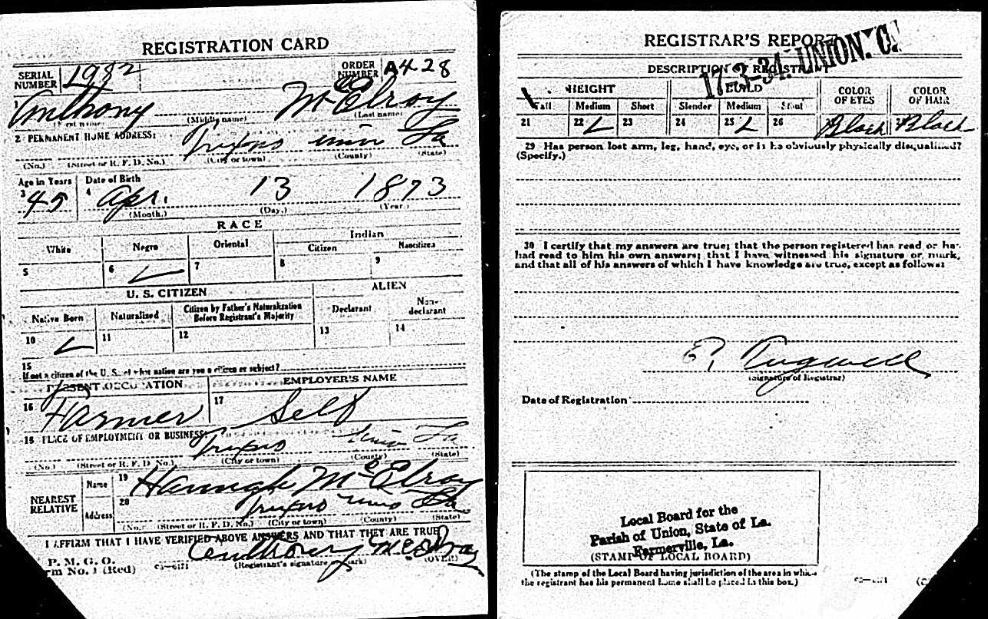 REGISTRATION CARD
SERIAL NUMBER 1982
ORDER NUMBER A428
Anthony McElroy
(First name) (Middle name) (Last name)
2 PERMANENT HOME ADDRESS:
La
(No.) (Street or R. F. D. No.) (City or town) (County) (State)
Age in Years Date of Birth
3 45 4 Apr. 13 1873
(Month.) (Day.) (Year.)
RACE
White Negro Oriental Indian
Citizen Noncitizen
5 6 7 8 9
U. S. CITIZEN ALIEN
Native Born Naturalized Citizen by Father's Naturalization Before Registrant's Majority Declarant Non-declarant
10 11 12 13 14
15
If not a citizen of the U. S., of what nation are you a citizen or subject?
PRESENT OCCUPATION EMPLOYER'S NAME
16 Farmer 17 Self
18 PLACE OF EMPLOYMENT OR BUSINESS:
La
(No.) (Street or R. F. D. No.) (City or town) (County) (State)
NEAREST RELATIVE
Name 19 Hannah McElroy
Address 20 La
(No.) (Street or R. F. D. No.) (City or town) (County) (State)
I AFFIRM THAT I HAVE VERIFIED ABOVE ANSWERS AND THAT THEY ARE TRUE
P. M. G. O.
rm No. 1 (Red)
Anthony McElroy
(Registrant's signature or mark) (OVER)
REGISTRAR'S REPORT
17-3-34. UNION. C.
DESCRIPTION OF REGISTRANT
HEIGHT BUILD COLOR OF EYES COLOR OF HAIR
Tall Medium Short Slender Medium Stout
21 22 23 24 25 26 Black Black
29 Has person lost arm, leg, hand, eye, or is he obviously physically disqualified?
(Specify.)
30 I certify that my answers are true; that the person registered has read or has
had read to him his own answers; that I have witnessed his signature or mark,
and that all of his answers of which I have knowledge are true, except as follows:
(Signature of Registrar)
Date of Registration
Local Board for the
Parish of Union, State of La.
Farmerville, La.
(STAMP OF LOCAL BOARD)
(The stamp of the Local Board having jurisdiction of the area in which
the registrant has his permanent home shall be placed in this box.)